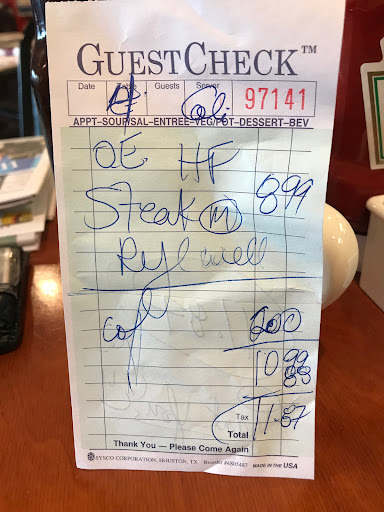 GUESTCHECK™
Date Table Guests Server
97141
APPT-SOUP/SAL-ENTREE-VEG/POT-DESSERT-BEV
OE HF
Steak M 899
Rye well
cof 200
10 99
88
Tax
Total 11.87
Thank You — Please Come Again
SYSCO CORPORATION, HOUSTON, TX Reorder #4805487 MADE IN THE USA